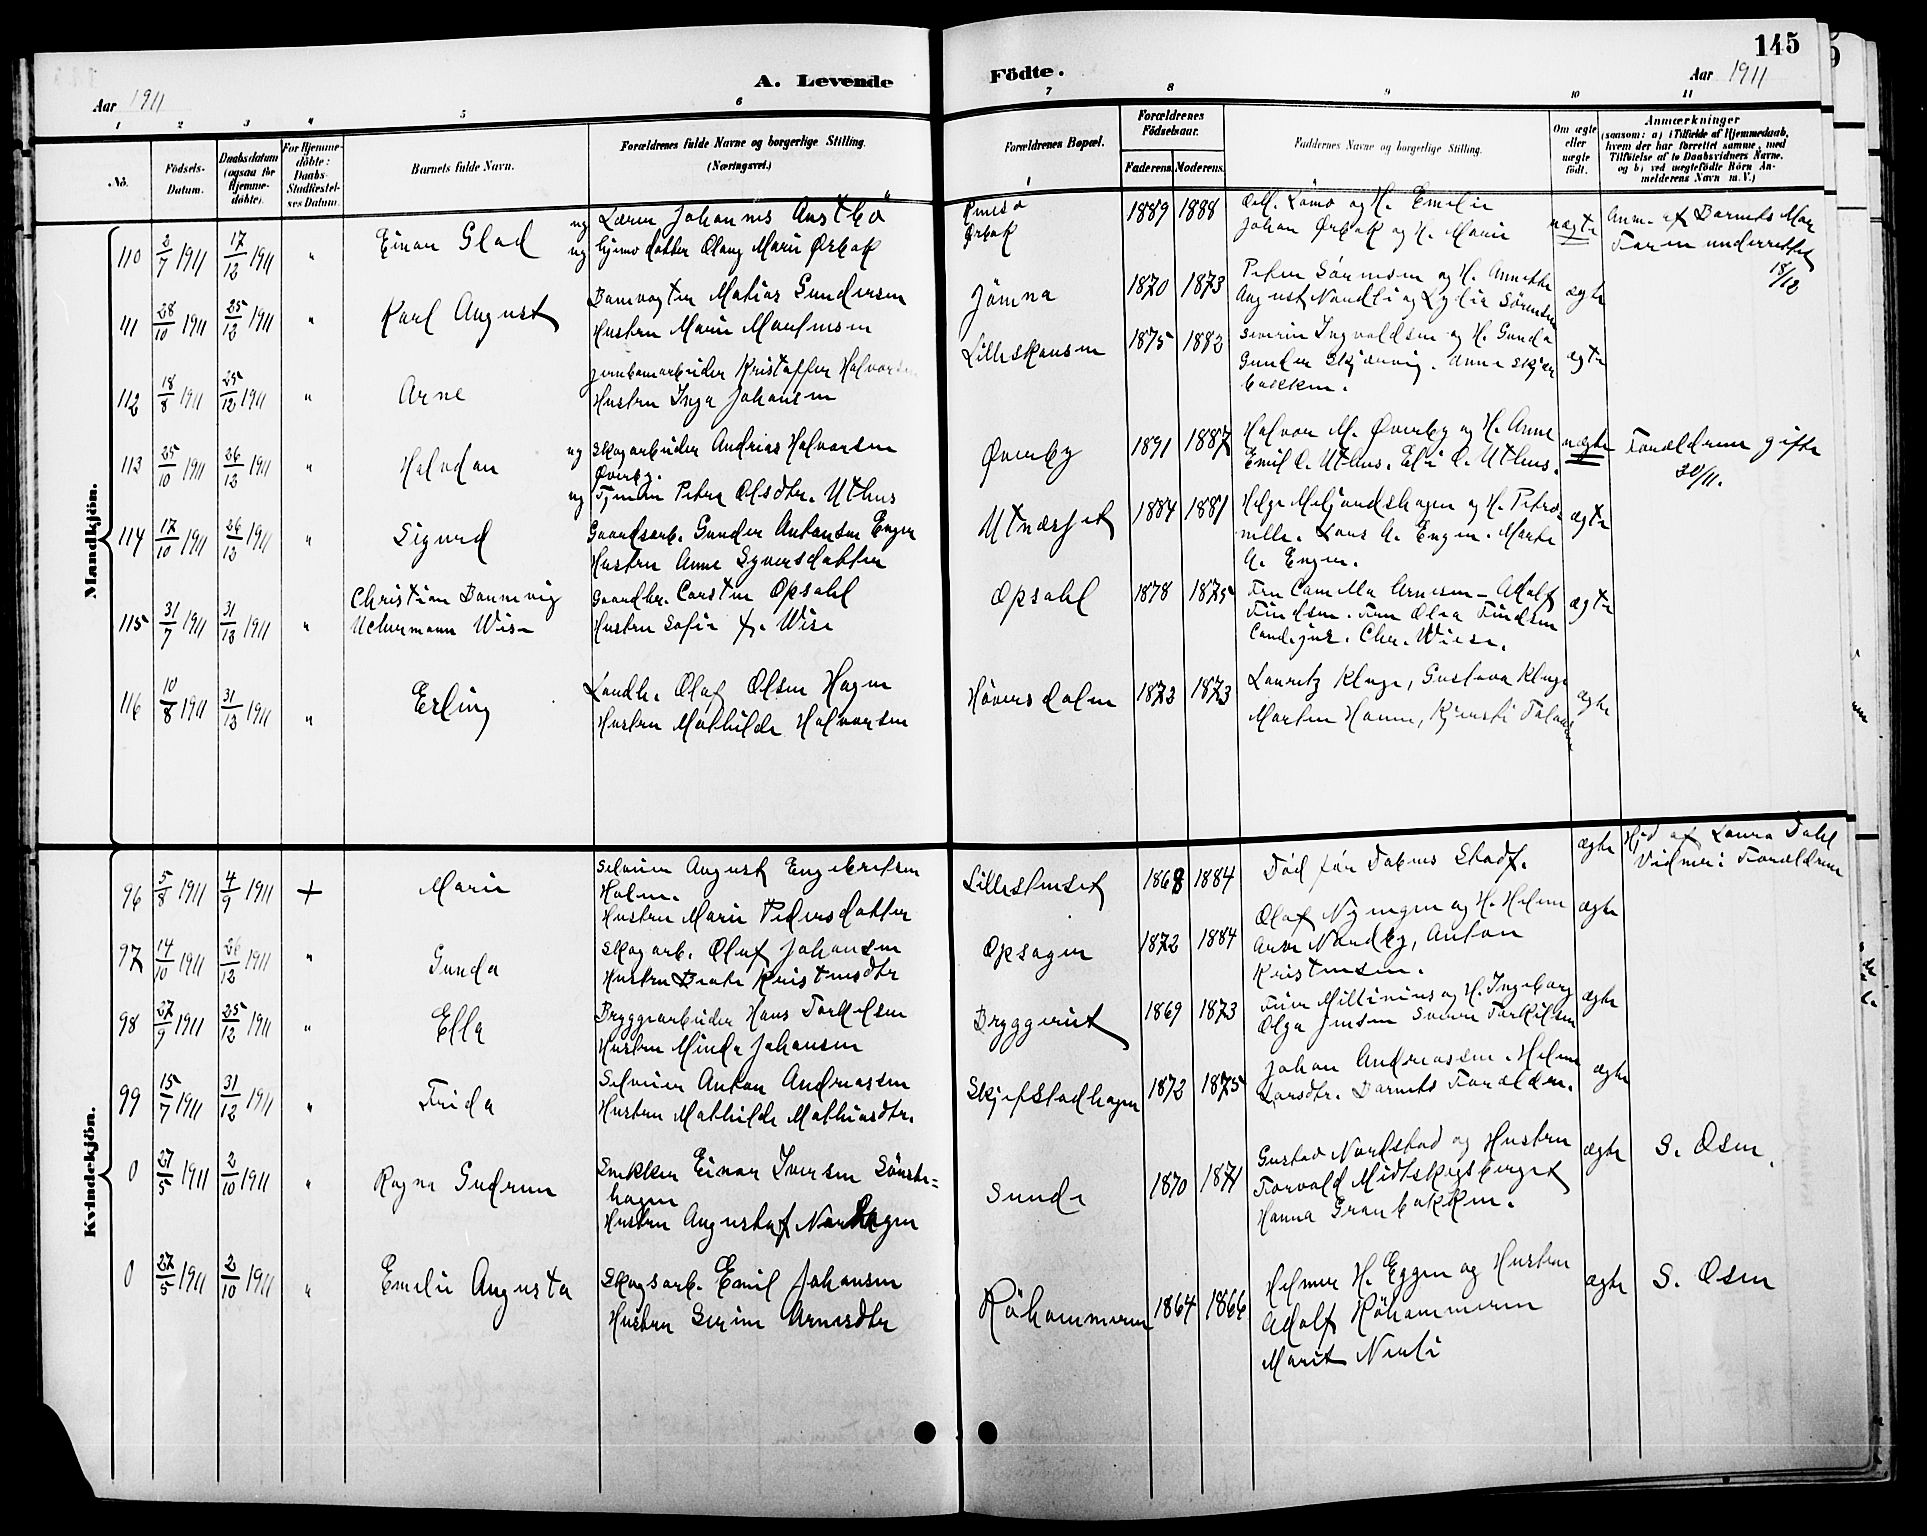 145
A. Levende Födte.
Aar 1911
Aar 1911
1 2 3 4 5 6 7 8 9 10 11
No.
Födsels-
Datum.
Daabsdatum
(ogsaa for
Hjemme-
döbte).
For Hjemme-
döbte:
Daabs-
Stadfæstel-
ses Datum.
Barnets fulde Navn.
Forældrenes fulde Navne og borgerlige Stilling.
(Næringsvei.)
Forældrenes Bopæl.
Forældrenes
Födselsaar.
Faderens. Moderens.
Faddernes Navne og borgerlige Stilling.
Om ægte
eller
uægte
født.
Anmærkninger
(saasom: a) i Tilfælde af Hjemmedaab,
hvem der har forrettet samme, med
Tilföielse af to Daabsvidners Navne,
og b) ved uægtefödte Börn An-
melderens Navn m. V.)
Mandkjön.
110 2/7 1911 17/12 1911 " Einar Glad
ug Lærer Johannes Austbö
ug Hjemv datter Olaug Marie Ørbak
Ørbak
1889 1888
O.M. Lömo og H. Emelie
Johan Ørbak og H. Marie
uægte
Anm. af Barnets Mor
Faren underrettet
18/12
111 28/10 1911 25/12 1911 " Karl August
Banevogter Matias Gundersen
Hustru Marie Maurensen
Jömna
1870 1873
Peter Sörensen og H. Annette
August Nordli og Lydia Sörensen
ægte
112 18/8 1911 25/12 1911 " Arne
Jernbanearbeider Kristoffer Halvorsen
Hustru Inga Johansen
Lilleskansen
1875 1882
Severin Ingvaldsen og H. Gunda
Gunder Skjærvig. Anne Skjær
bækken.
ægte
113 25/10 1911 26/12 1911 " Halvdan
ug Skogarbeider Andreas Halvorsen
Øverby.
ug Tjen Petra Olsdtr. Uthus
Øverby
1891 1887
Halvor M. Øverby og H. Anne
Emil O. Uthus. Eli O. Uthus.
uægte
Forældrene gifte
30/11.
114 17/10 1911 26/12 1911 " Sigurd
Gaardsarb. Gunder Antonsen Engen
Hustru Anne Syversdatter
Utnæset
1884 1881
Helge Meljordshagen og H. Petro-
nelle. Lars A. Engen. Marte
A. Engen.
ægte
115 31/7 1911 31/12 1911 " Christian Bannevig
Uchermann Wise
Gaardbr. Carsten Opsahl
Hustru Sofie f. Wise
Opsahl
1878 1875
Fru Camilla Arnesen – Adolf
Findsen. Fru Olea Findsen
Cand. jur. Chr. Wiese.
ægte
116 10/8 1911 31/12 1911 " Erling
Landh. Olaf Olsen Hagen
Hustru Mathilde Halvorsen
Höversdalen
1873 1873
Lauritz Kluge, Gustava Kluge
Morten Hanen, Kjersti
ægte
Kvindekjön.
96 5/8 1911 4/9 1911 + Marie
Selveier August Engebretsen
Holen.
Hustru Marie Pedersdatter
Lillestenset
1868 1884
Död för Daabens Stadf.
ægte
Hjd af Laura Dahl
Vidner: Forældrene
97 14/10 1911 26/12 1911 " Gunda
Skogarb. Oluf Johansen
Hustru Beate Kristensdtr
Opsagen
1872 1884
Olaf Nyengen og H. Helene
Arne Nordby, Anton
Kristensen.
ægte
98 27/9 1911 25/12 1911 " Ella
Bryggeriarbeider Hans Torkelsen
Hustru Minda Johansen
Bryggeriet
1869 1873
og H. Ingeborg
Olga Jensen Torkilsen
ægte
99 15/7 1911 31/12 1911 " Frida
Selveier Anton Andreassen
Hustru Mathilde Mathiasdtr.
Skjefstadhagen
1872 1875
Johan Andreassen. Helene
Larsdtr. Barnets Forældre.
ægte
0 27/5 1911 2/10 1911 " Ragna Gudrun
Snekker Einar Iversen Sönste-
hagen
Hustru Augusta f. Nordhagen
Sunde
1870 1871
Gustav Nordstad og Hustru
Torvald Midtskogsberget
Hanna Granbakken.
ægte
S. Osen.
0 27/5 1911 2/10 1911 " Emelie Augusta
Skogsarb. Emil Johansen
Hustru Serine Arnesdtr
Röhammeren
1864 1866
Helmer H. Eggen og Hustru
Adolf Röhammeren
Marit Nerli
ægte
S. Osen